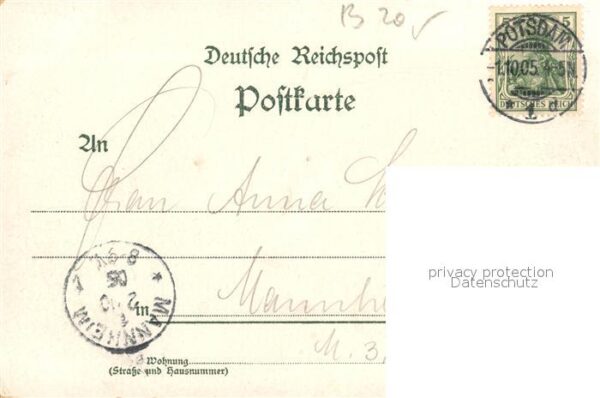 B 20
5 5
POTSDAM
1.10.05. 4-5N.
* 1 d
DEUTSCHES REICH
Deutsche Reichspost
Postkarte
An
Frau Anna
MANNHEIM
in Mannhei
M. 3,
Wohnung
(Straße und Hausnummer)
privacy protection
Datenschutz